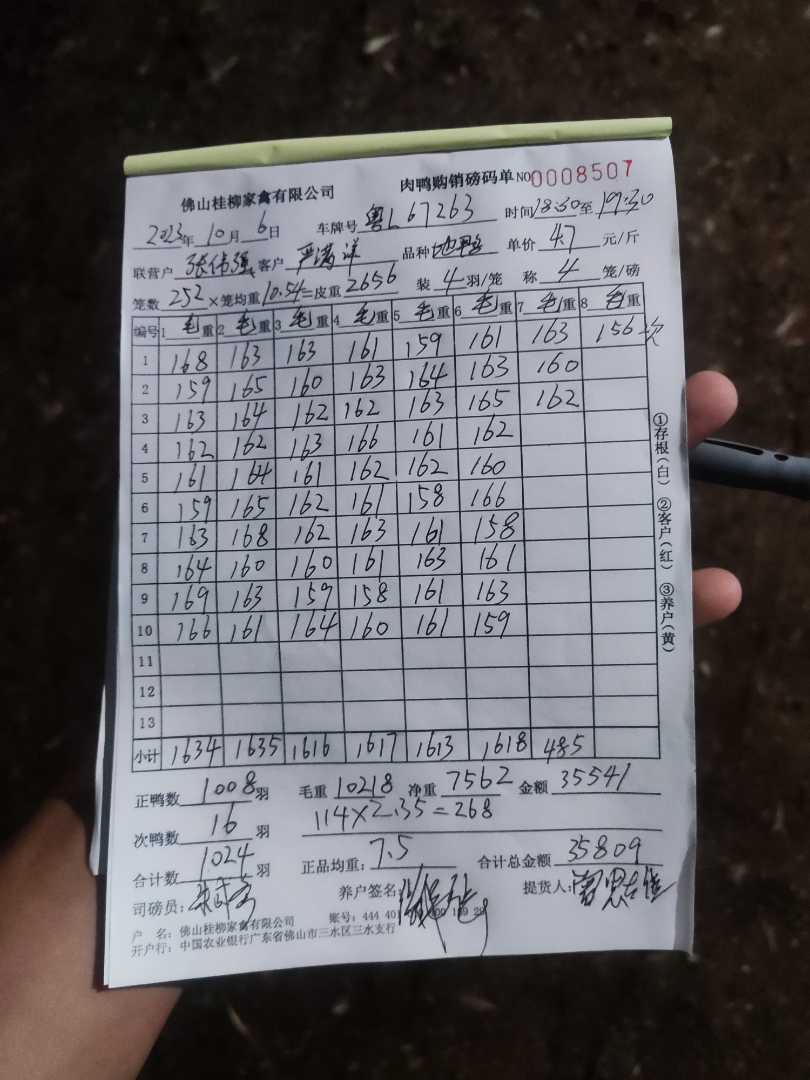 佛山桂柳家禽有限公司 肉鸭购销磅码单 NO 0008507
2023年 10月 6日 车牌号 粤L 67263 时间 18:30 至 19:30
联营户 张伟强 客户 严满洋 品种 地鸭 单价 4.7 元/斤
笼数 252 ×笼均重 10.54 =皮重 2656 装 4 羽/笼 称 4 笼/磅
编号 1 毛重 2 毛重 3 毛重 4 毛重 5 毛重 6 毛重 7 毛重 8 毛重
1 168 163 163 161 159 161 163 156 次
2 159 165 160 163 164 163 160
3 163 164 162 162 163 165 162
4 162 162 163 166 161 162
5 161 164 161 162 162 160
6 159 165 162 161 158 166
7 163 168 162 163 161 158
8 164 160 160 161 163 161
9 169 163 159 158 161 163
10 166 161 164 160 161 159
11
12
13
小计 1634 1635 1616 1617 1613 1618 485
①存根(白) ②客户(红) ③养户(黄)
正鸭数 1008 羽 毛重 10218 净重 7562 金额 35541
次鸭数 16 羽 114×2.35=268
合计数 1024 羽 正品均重: 7.5 合计总金额 35809
司磅员: 养户签名: 提货人:
户 名: 佛山桂柳家禽有限公司 账号: 444 401
开户行: 中国农业银行广东省佛山市三水区三水支行